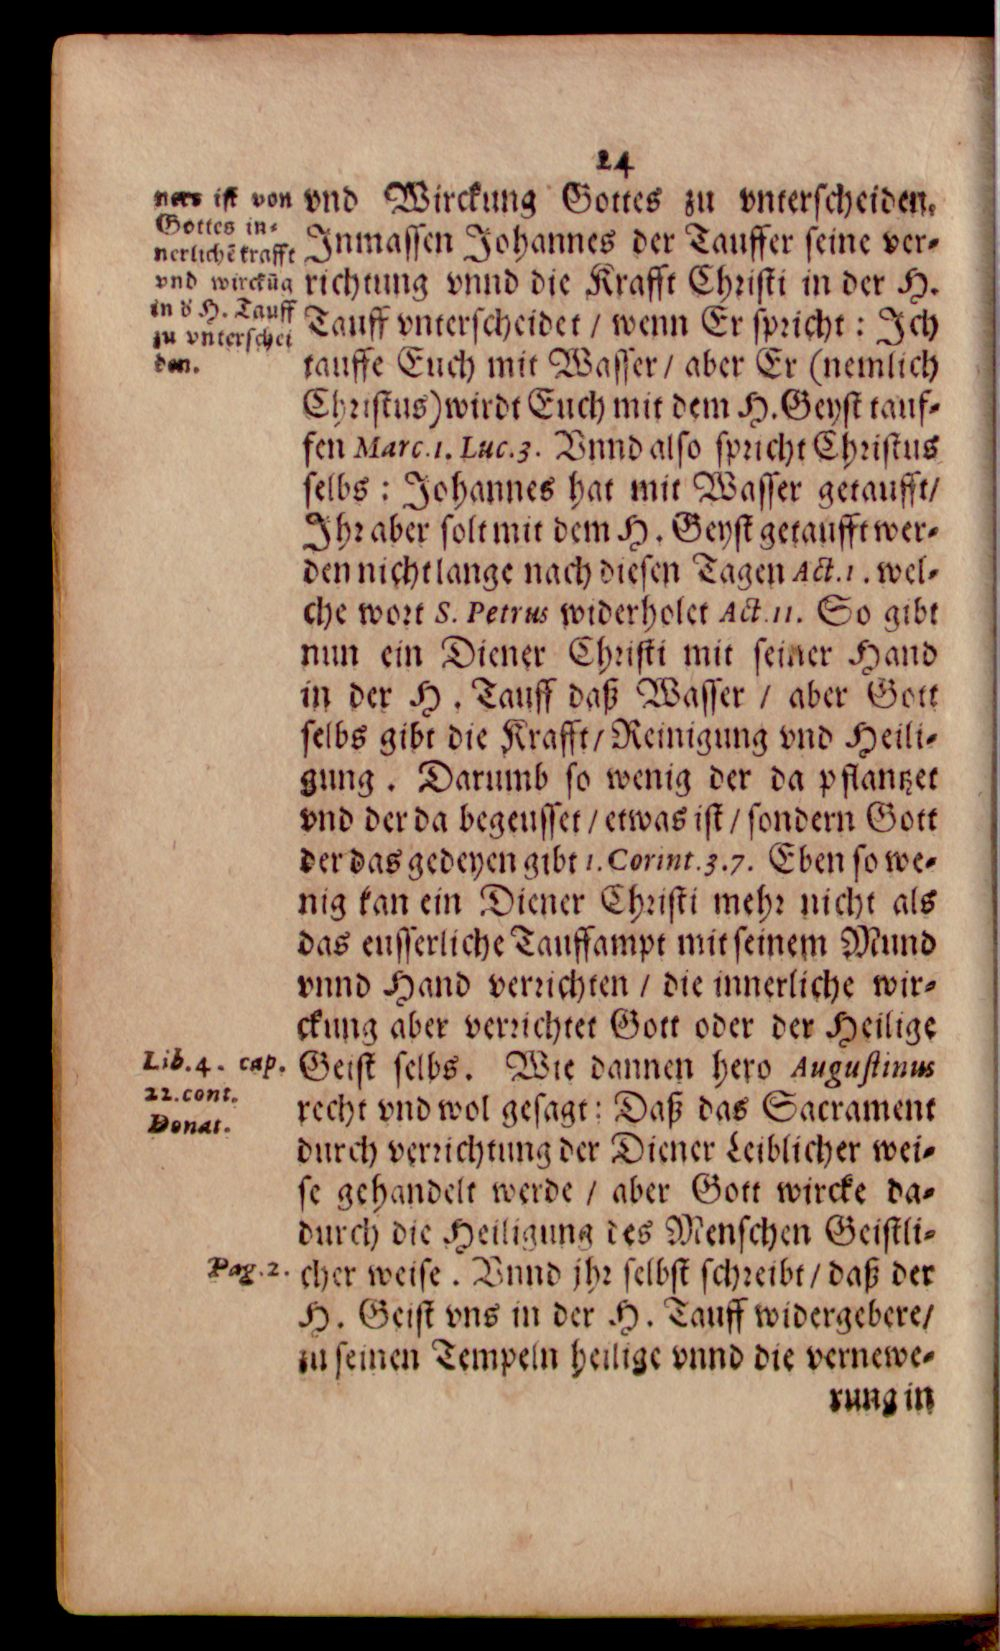 24
ners ist von
Gottes in-
nerlichẽ krafft
vnd wirckũg
in d H. Tauff
zu vnterschei
den.
vnd Wirckung Gottes zu vnterscheiden.
Inmassen Johannes der Tauffer seine ver-
richtung vnnd die Krafft Christi in der H.
Tauff vnterscheidet / wenn Er spricht: Ich
tauffe Euch mit Wasser / aber Er (nemlich
Christus) wirdt Euch mit dem H. Geyst tauf-
fen Marc. 1. Luc. 3. Vnnd also spricht Christus
selbs: Johannes hat mit Wasser getaufft/
Ihr aber solt mit dem H. Geyst getaufft wer-
den nicht lange nach diesen Tagen Act. 1. wel-
che wort S. Petrus widerholet Act. 11. So gibt
nun ein Diener Christi mit seiner Hand
in der H. Tauff daß Wasser / aber Gott
selbs gibt die Krafft / Reinigung vnd Heili-
gung. Darumb so wenig der da pflantzet
vnd der da begeusset / etwas ist / sondern Gott
der das gedeyen gibt 1. Corint. 3. 7. Eben so we-
nig kan ein Diener Christi mehr nicht als
das eusserliche Tauffampt mit seinem Mund
vnnd Hand verrichten / die innerliche wir-
ckung aber verrichtet Gott oder der Heilige
Lib. 4. cap.
22. cont.
Donat.
Geist selbs. Wie dannen hero Augustinus
recht vnd wol gesagt: Daß das Sacrament
durch verrichtung der Diener Leiblicher wei-
se gehandelt werde / aber Gott wircke da-
durch die Heiligung des Menschen Geistli-
Pag. 2.
cher weise. Vnnd jhr selbst schreibt / daß der
H. Geist vns in der H. Tauff widergebere/
zu seinen Tempeln heilige vnnd die vernewe-
rung in